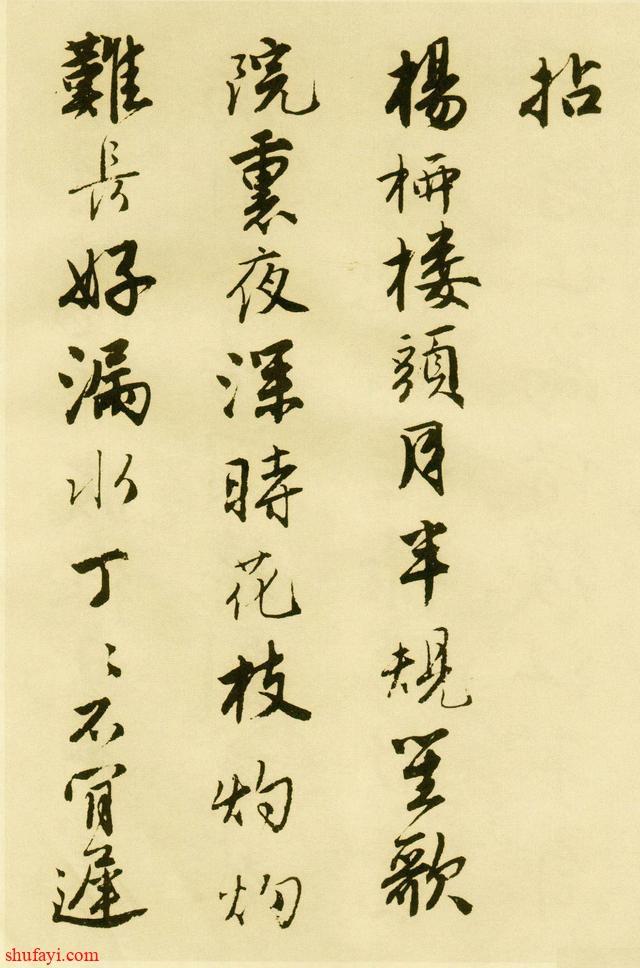 拈
楊柳樓頭月半規笙歌
院裏夜深時花枝灼灼
難長好漏水丁〻不肯遲
shufayi.com